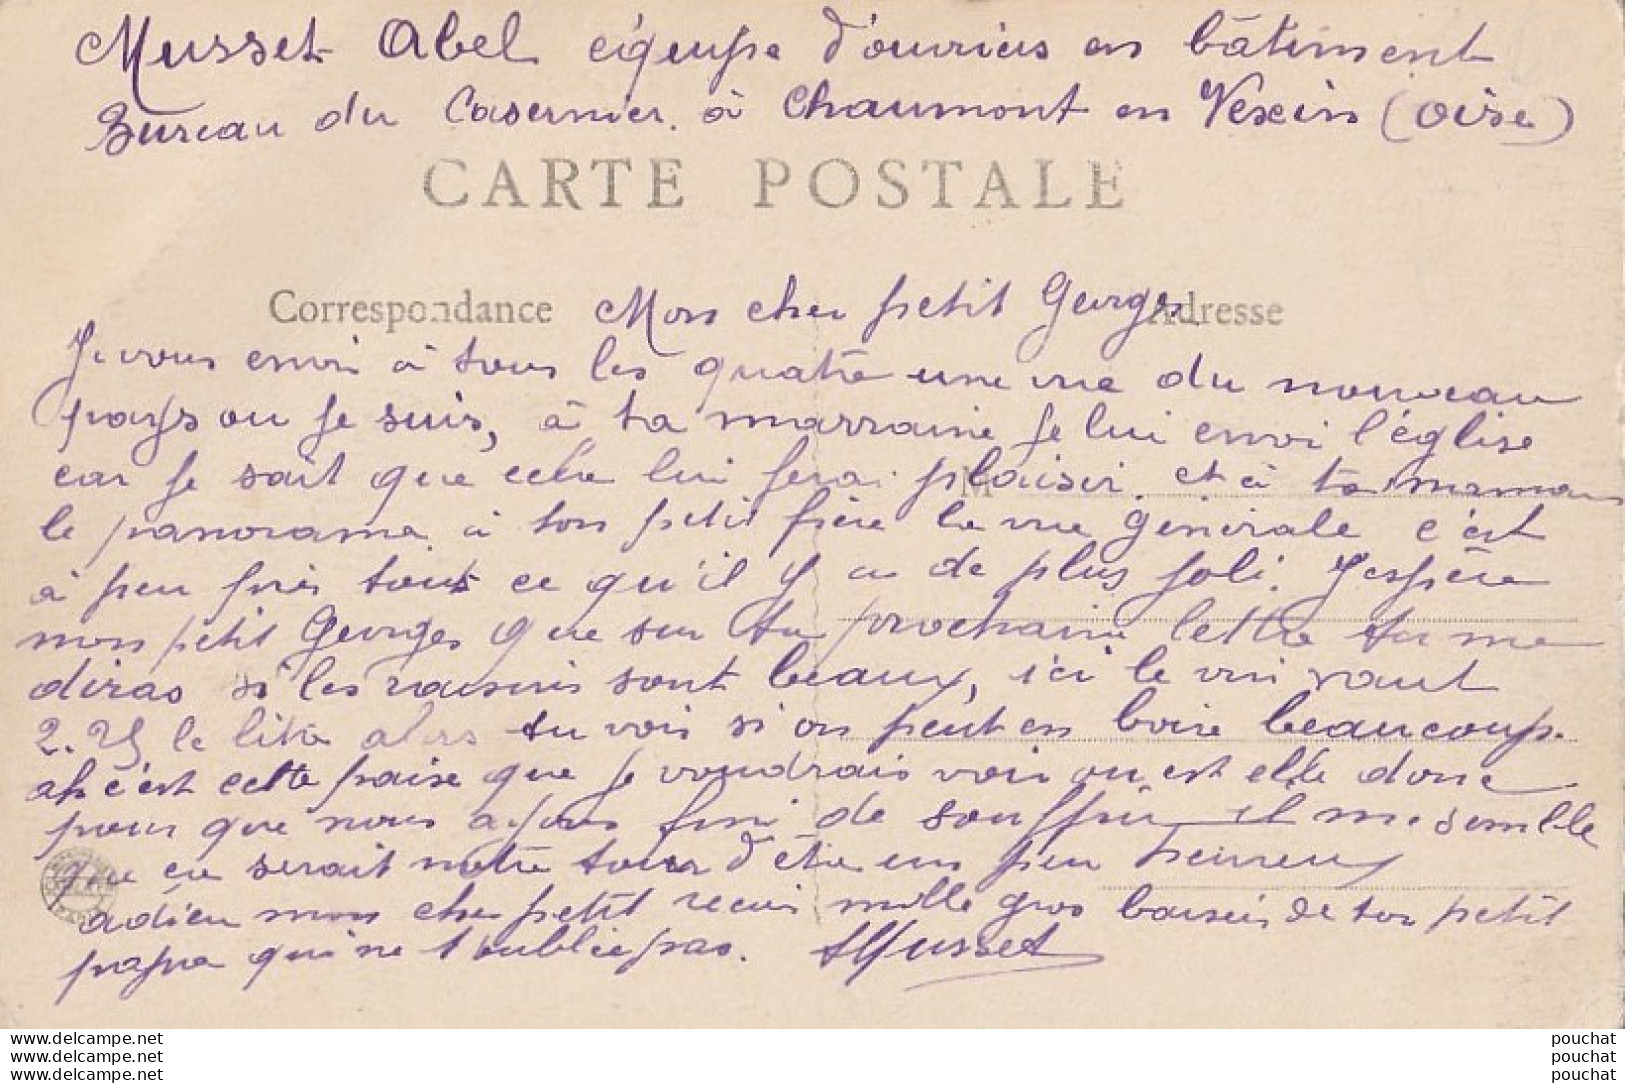 Musset Abel équipe d'ouvriers en bâtiment
Bureau du Casernier. à Chaumont en Vexin (Oise)
CARTE POSTALE
Correspondance Mon cher petit Georges Adresse
Je vous envoi à tous les quatre une vue du nouveau
pays ou je suis, à ta marraine je lui envoi l'église
car je sait que cela lui ferai plaisir. et à ta maman
M
le panorama à ton petit frère la vue générale c'est
à peu près tout ce qu'il y a de plus joli. J'espère
mon petit Georges que sur ta prochaine lettre tu me
diras si les raisins sont beaux, ici le vin vaut
2.25 le litre alors tu vois si on peut en boire beaucoup.
ah c'est cette paise que je voudrais voir ou est elle donc
pour que nous ayons fini de souffrir il me semble
que ce serait notre tour d'être un peu heureux
adieu mon cher petit recois mille gros baisers de ton petit
papa qui ne t'oublie pas. AMusset
www.delcampe.net
www.delcampe.net
www.delcampe.net
pouchat
pouchat
pouchat